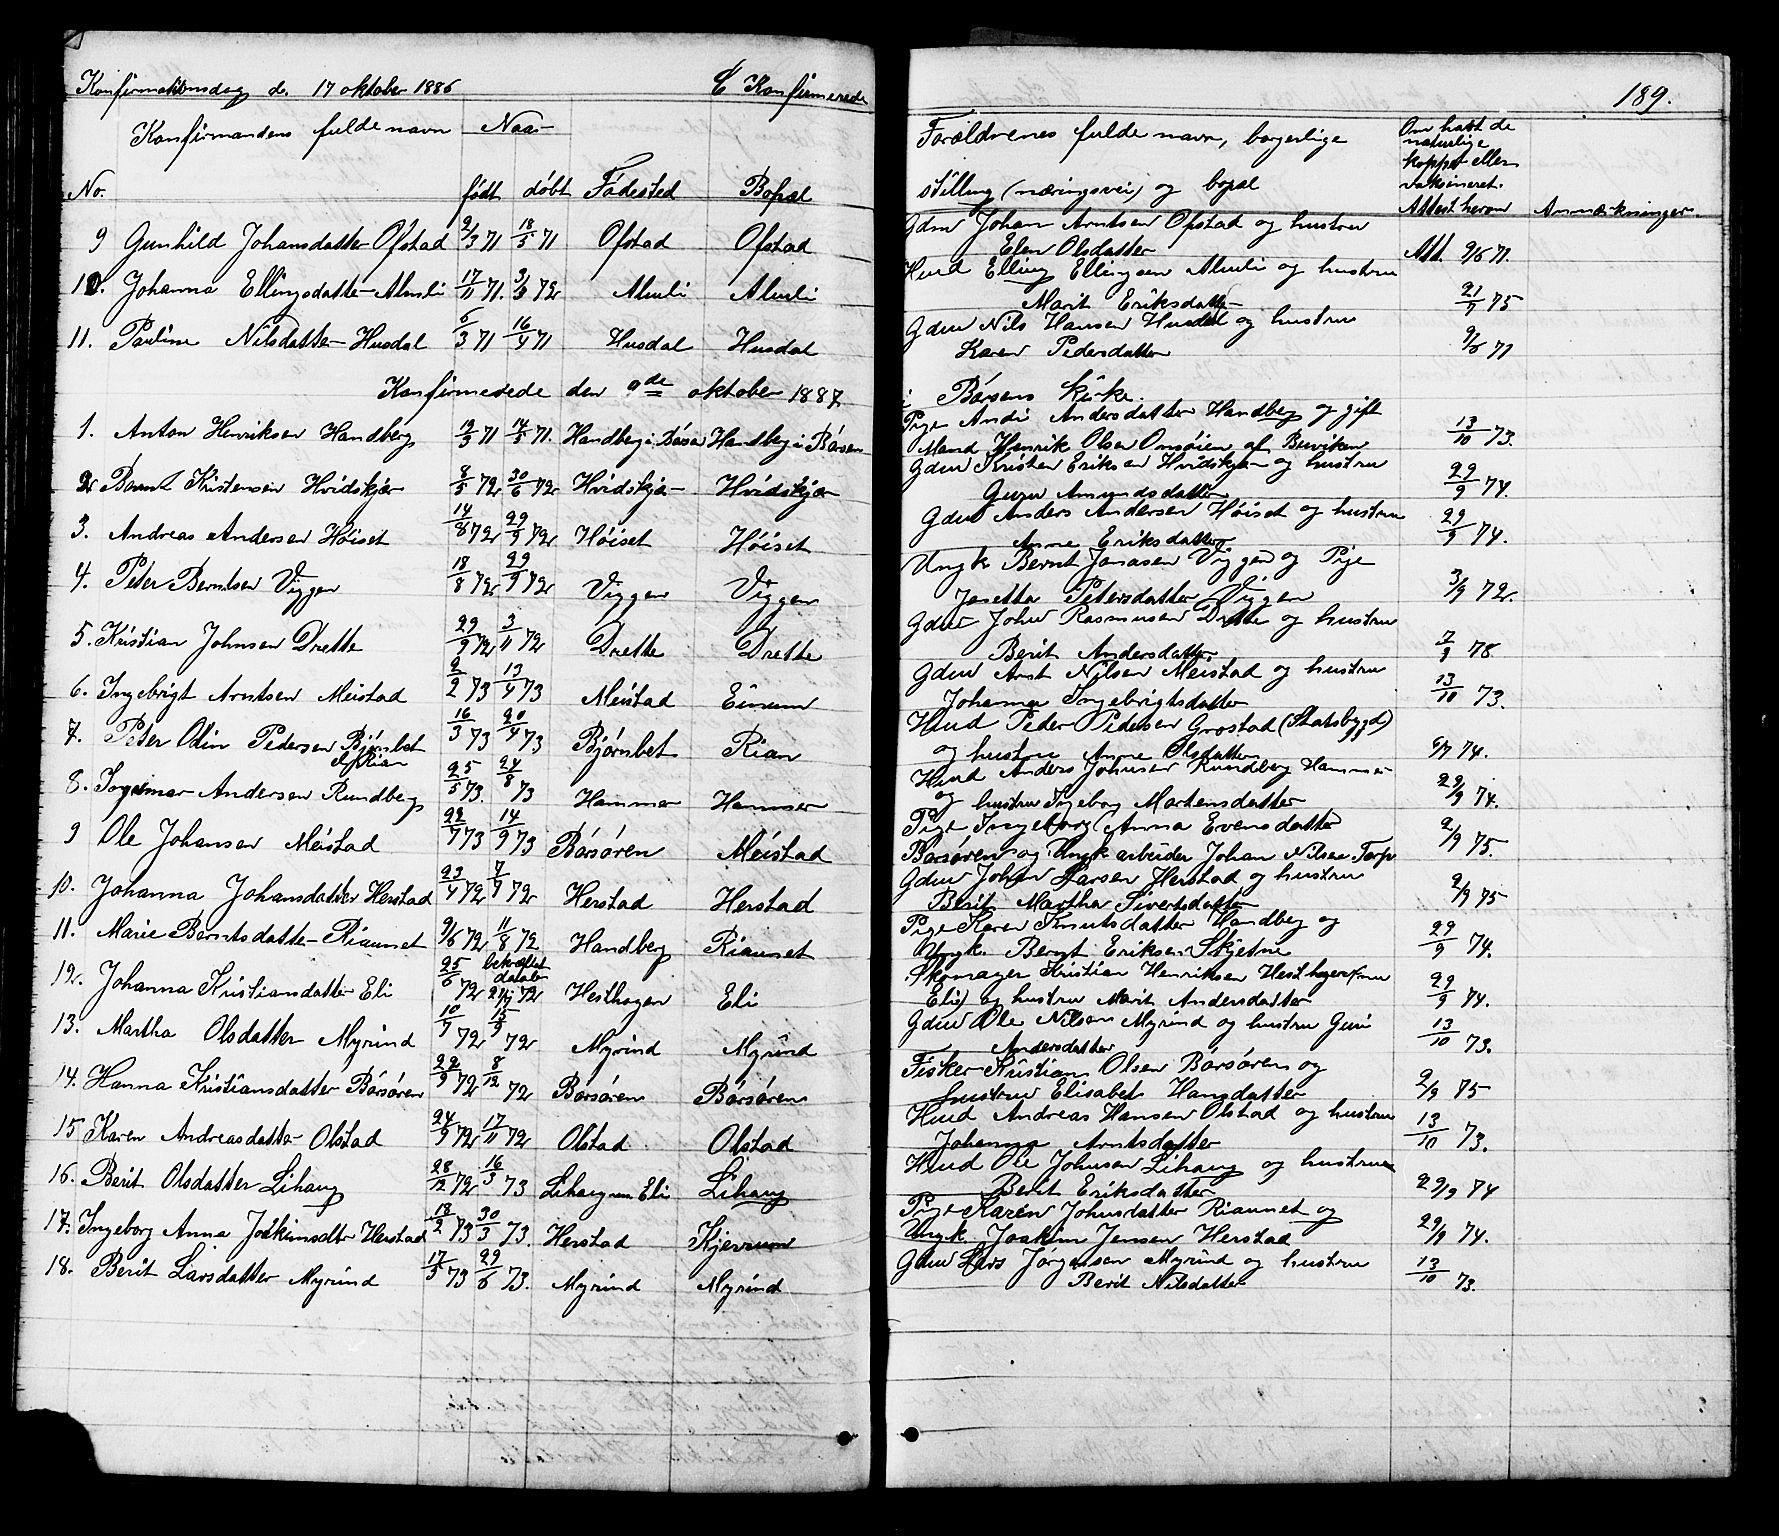 Konfirmationsdag d. 17 oktober 1886
C Konfirmerede
Konfirmandens fulde navn Naar
No. født døbt Fødested Bopæl
9 Gunhild Johansdatter Ofstad 2/3 71 18/5 71 Ofstad Ofstad
10. Johanna Ellingsdatter Almli 17/11 71. 3/3 72 Almli Almli
11. Pauline Nilsdatter Husdal 6/3 71 16/4 71 Husdal Husdal
Konfirmerede den 9de oktober 1887
1. Anton Henriksen Handberg 71 14/5 71. Handberg i Børsen Handberg i Børsen
2 Bernt Kristensen Hvidskjær 8/5 72 30/6 72 Hvidskjær Hvidskjær
3. Andreas Andersen Høiset 14/8 72 29/9 72 Høiset Høiset
4. Peter Berntsen Viggen 18/8 72 29/9 72 Viggen Viggen
5. Kristian Johnsen Drette 29/9 72 3/11 72 Drette Drette
6. Ingebrigt Arntsen Meistad 2/2 73 13/4 73 Meistad Einum
7. Peter Odin Pedersen Bjørnbet 16/3 73 20/4 73 Bjørnbet Rian
af Rian
8. Ingemar Andersen Rundberg 25/5 73. 24/8 73 Hammer Hammer
9 Ole Johansen Meistad 22/7 73 14/9 73 Børsøren Meistad
10. Johanna Johansdatter Herstad 23/4 72 7/7 72 Herstad Herstad
11. Marie Berntsdatter Riaunet 9/6 72 11/8 72 Handberg Riaunet
bekræftet
12. Johanna Kristiansdatter Eli 25/6 72 daaben 72 Hesthagen Eli
13. Martha Olsdatter Myrind 10/7 72 15/9 72 Myrind Myrind
14. Hanna Kristiansdatter Børsøren 22/9 72 8/12 72 Børsøren Børsøren
15 Karen Andreasdatter Olstad 24/9 72 17/11 72 Olstad Olstad
16. Berit Olsdatter Lihaug 28/12 72 16/3 73 Lihaug un Eli Lihaug
17. Ingeborg Anna Joakimsdtr Herstad 18/2 73 30/3 73. Herstad Kjevrum
18. Berit Larsdatter Myrind 17/5 73 29/6 73. Myrind Myrind
189.
Forældrenes fulde navn, borgerlige
stilling (næringsvei) og bopæl
Om havt de
naturlige
kopper eller
vaksineret.
Attest herom Anmærkninger.
Gdm Johan Arntsen Ofstad og hustru
Elen Olsdatter Att. 9/6 71.
Hmd Elling Ellingsen Almli og hustru
Marit Eriksdatter 21/9 75
Gdm Nils Hansen Husdal og hustru
Karen Pedersdatter 9/6 71
i Børsens kirke.
Pige Andersdatter Handberg og gift
Mand Henrik Olsen Onsøien af Buviken 13/10 73.
Gdm Kristen Eriksen Hvidskjær og hustru
Guru Amundsdatter 29/9 74.
Gdm Anders Andersen Høiset og hustru
Anne Eriksdatter 29/9 74.
Ungk Bernt Jonasen Viggen og Pige
Josetta Petersdatter Viggen 3/9 72.
Gdm John Rasmusen Drette og hustru
Berit Andersdatter 78
Gdm Arnt Nilsen Meistad og hustru
Johanna Ingebrigtsdatter 13/10 73.
Hmd Peder Pedersen Grøstad (Statsbygd)
og hustru Anne Olsdatter 74.
Hmd Anders Johnsen Rundberg Hammer
og hustru Ingeborg Martensdatter 29/9 74.
Pige Ingeborg Anna Evensdatter
Børsøren og Ungk arbeider Johan Nilsen Torp 2/9 75.
Gdm Johan Larsen Herstad og hustru
Berit Martha Sivertsdatter 2/9 75
Pige Karen Knutsdatter Handberg og
Ungk. Bernt Eriksen Skjetne 29/9 74.
Skomager Kristian Henriksen Hesthagen (nu
Eli) og hustru Marit Andersdatter 29/9 74.
Gdm Ole Nilsen Myrind og hustru Guri
Andersdatter 13/10 73.
Fisker Kristian Olsen Børsøren og
hustru Elisabet Hansdatter 2/9 75
Hmd Andreas Hansen Olstad og hustru
Johanna Arntsdatter 13/10 73.
Hmd Ole Johnsen Lihaug og hustru
Berit Eriksdatter 29/9 74
Pige Karen Johnsdatter Riaunet og
Ungk Joakim Jensen Herstad 29/9 74.
Gdm Lars Jørgensen Myrind og hustru
Berit Nilsdatter 13/10 73.